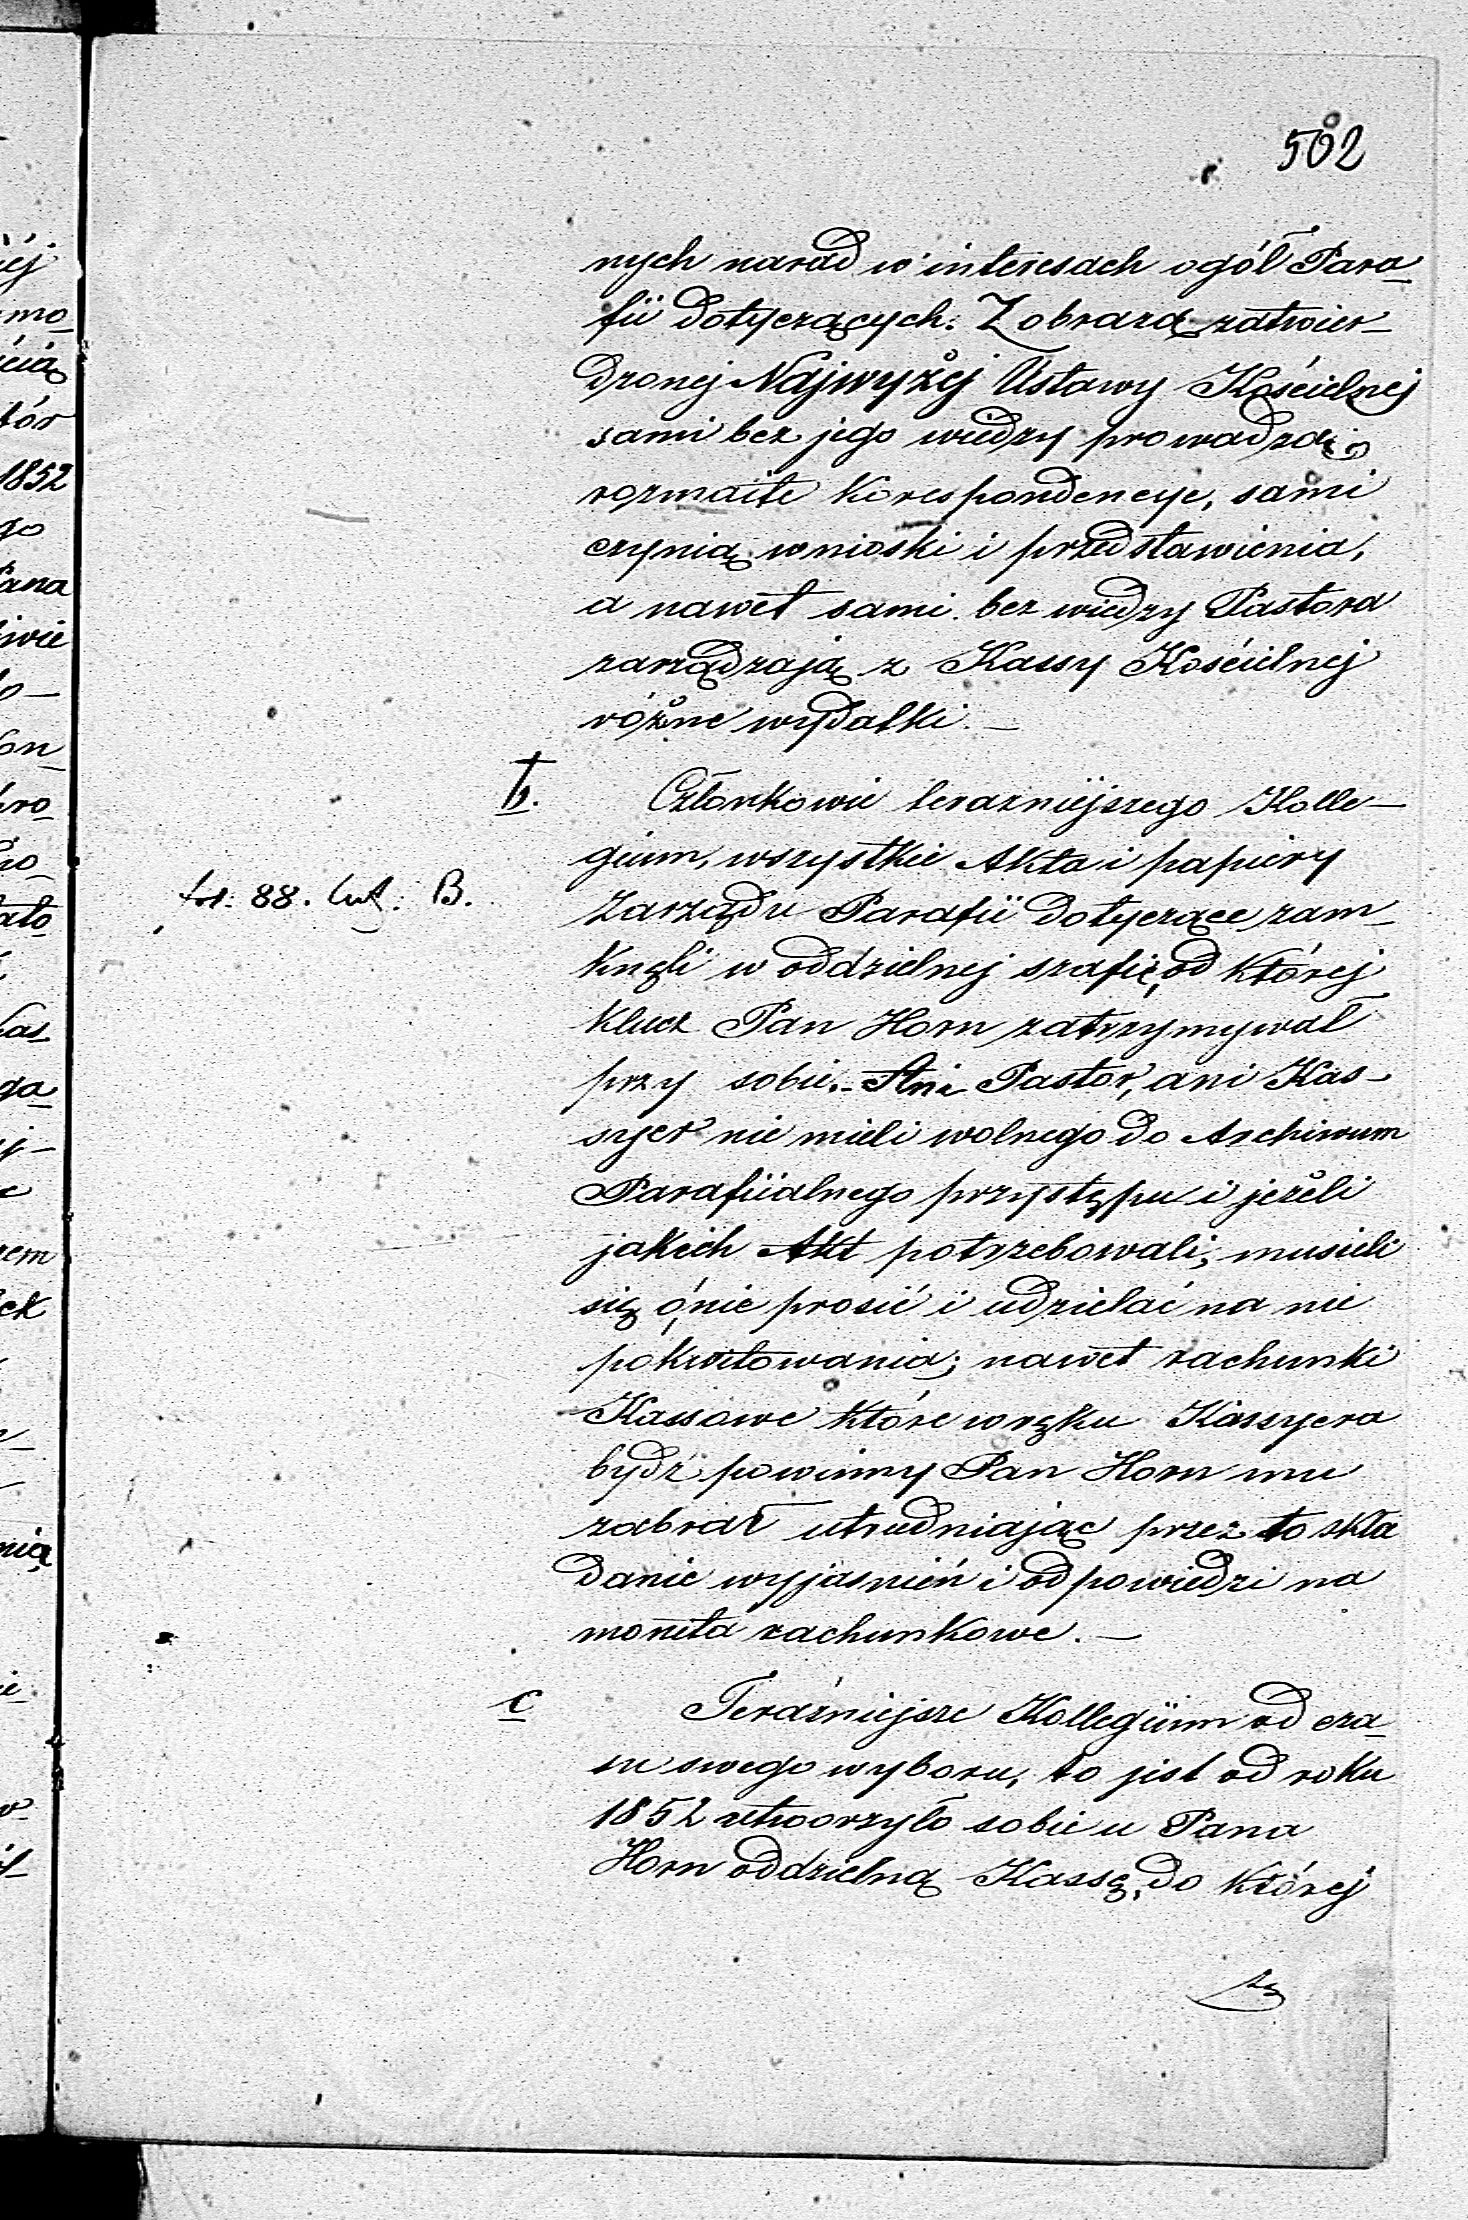 502
nych narad w interesach ogół Para_
fii dotyczących. Z obrazą zatwier_
dzonej Najwyżej Ustawy Kościelnej
sami bez jego wiedzy prowadzą
rozmaite korespondencye, sami
czynią wnioski i przedstawienia,
a nawet sami bez wiedzy Pastora
zarządzają z Kassy Kościelnej
różne wydatki. —
b.
Członkowie terazniejszego Kolle—
gium, wszystkie Akta i papiery
fol: 88. lit: B.
Zarządu Parafii dotyczące zam_
knęli w oddzielnej szafie, od której
klucz Pan Horn zatrzymywał
przy sobie. Ani Pastor, ani Kas_
syer nie mieli wolnego do Archiwum
Parafiialnego przystępu i jeżeli
jakich Akt potrzebowali, musieli
się o nie prosić i udzielać na nie
pokwitowania; nawet rachunki
Kassowe które w ręku Kassyera
bydź powinny Pan Horn mu
zabrał utrudniając przez to skła
danie wyjasnień i odpowiedzi na
monita rachunkowe. —
c
Teraźniejsze Kollegium od cza_
su swego wyboru, to jest od roku
1852 utworzyło sobie u Pana
Horn oddzielną Kassę, do której